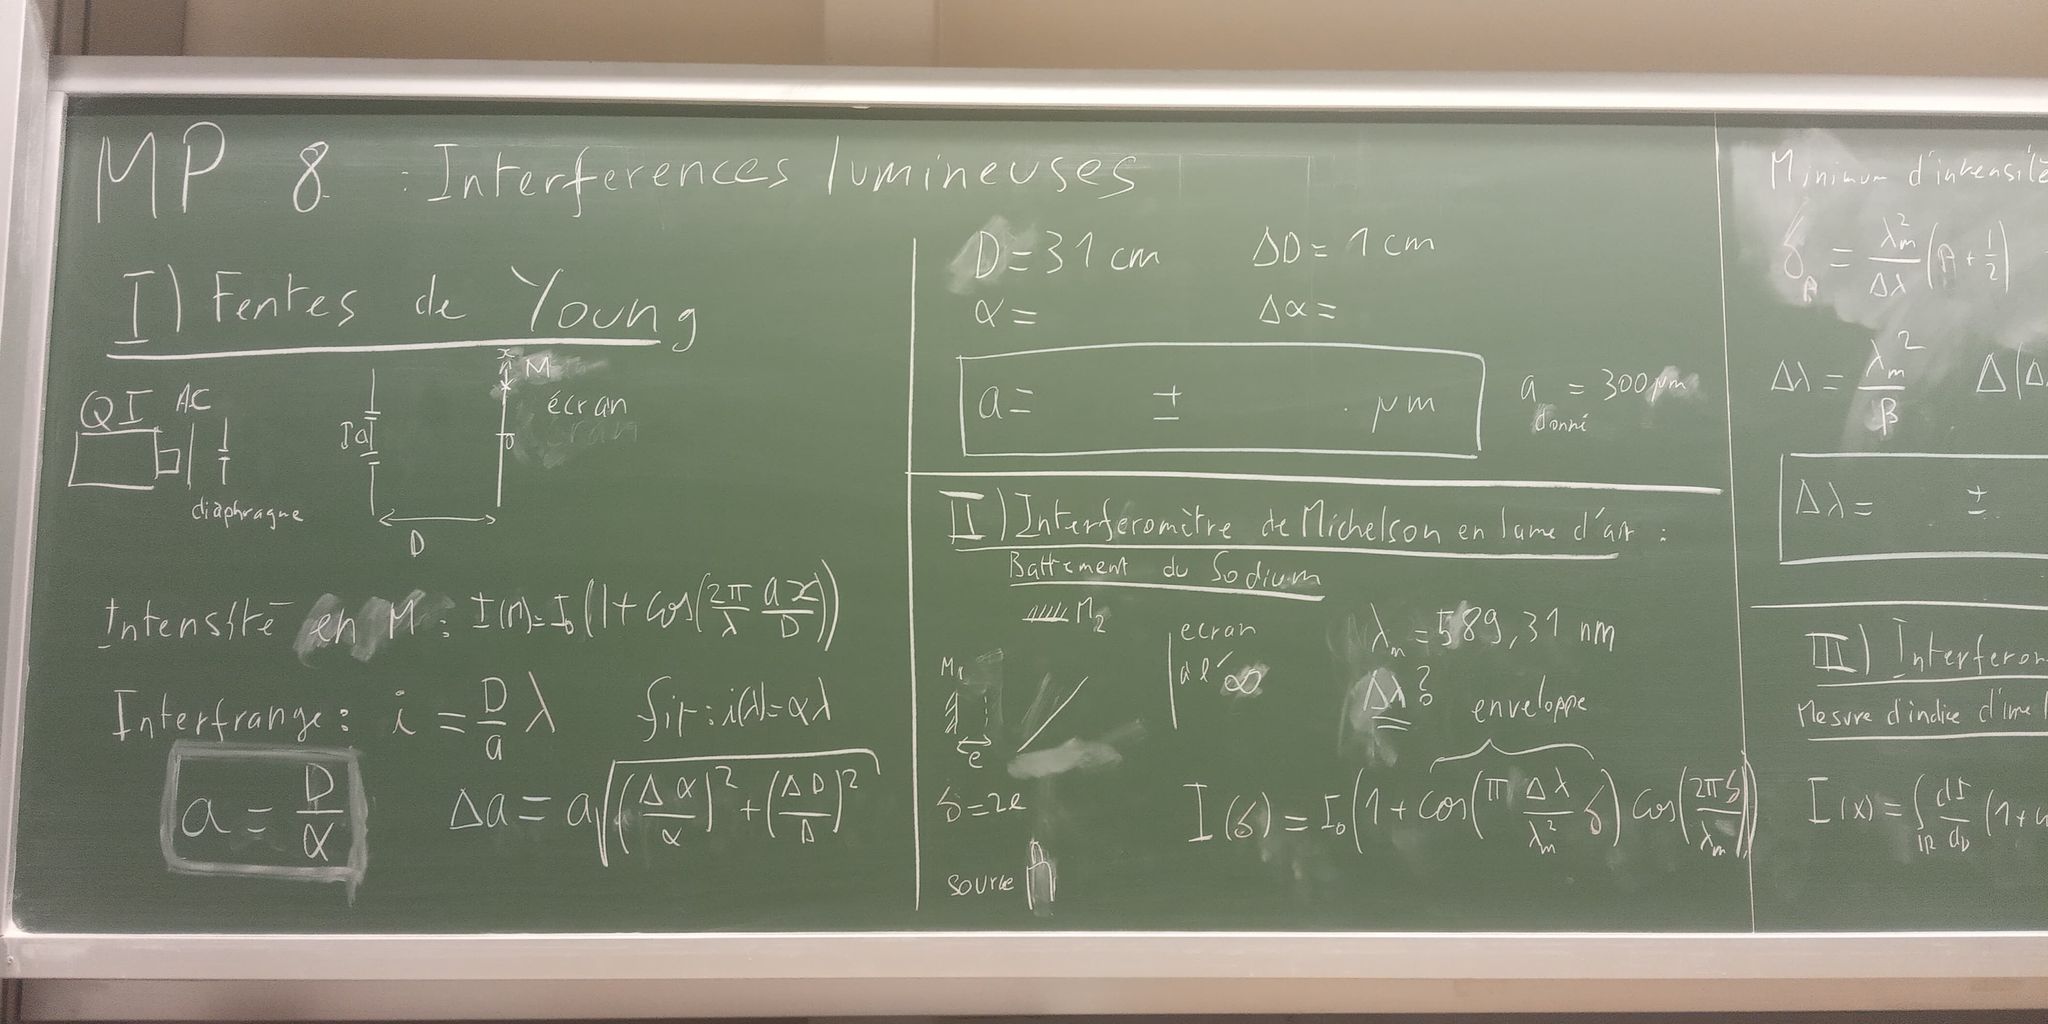 MP 8 : Interferences lumineuses
I) Fentes de Young
QI AC
diaphragme
a
D
x
M
O
écran
Intensité en M : I(M)=I₀(1+cos(2π/λ ax/D))
Interfrange : i = D/a λ fit : i(λ)=αλ
a = D/α Δa = a√((Δα/α)²+(ΔD/D)²)
D=31 cm ΔD= 1 cm
α = Δα=
a = ± μm
a donné = 300 μm
II) Interferomètre de Michelson en lame d'air :
Battement du Sodium
M₂
M₁
e
δ=2e
source
ecran
à l'∞
λₘ = 589,31 nm
Δλ ?
enveloppe
I(δ) = I₀(1+cos(π Δλ/λₘ² δ) cos(2πδ/λₘ))
Minimum d'intensité
= λₘ²/Δλ ( + 1/2)
Δλ = λₘ²/β Δ(Δ
Δλ = ±
III) Interferom
Mesure d'indice d'une
I(x) = ∫
(1+